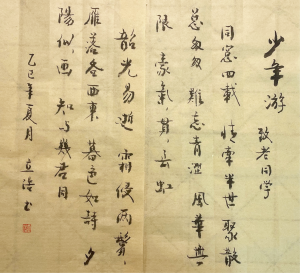 少年游 致老同学
同窗四载 情牵半世 聚散
总匆匆 难忘青涩 风华无
限 豪气贯长虹
韶光易逝 霜侵两鬓
雁落各西東 暮色如詩 夕
陽似画 知与幾君同
乙巳年夏月 立浩书